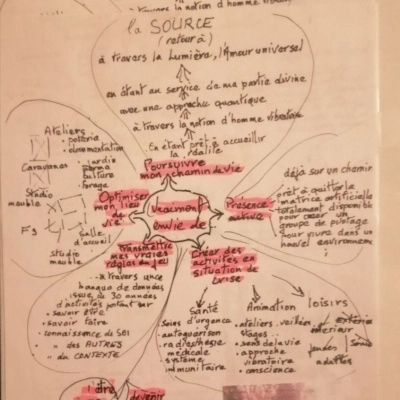 la notion d'homme
la SOURCE
(retour à)
à travers la Lumière, l'Amour universel
en étant au service de ma partie divine
avec une approche quantique
à travers la notion d'homme vibratoire
En étant prêt à accueillir
la réalité
Poursuivre
mon chemin de vie
Ateliers
• poterie
• alimentation
Caravanes
jardin
forme
culture
forage
Studio
meublé
F3
Salle
d'accueil
Studio
meublé
Optimiser
mon lieu
de
vie
Vraiment
envie de
Présence
déjà sur un chemin
prêt à quitter la
matrice artificielle
totalement disponible
pour créer un
groupe de pilotage
pour vivre dans un
nouvel environnement
Transmettre
mes vraies
règles en jeu
à travers une
banque de données
issue de 30 années
d'activités portant sur
• savoir être
• savoir faire
• connaissance de SOI
• " des AUTRES
• " du CONTEXTE
Créer des
activités en
situation de
crise
Santé
Soins d'urgence
autoguérison
radiesthésie
médicale
système
immunitaire
Animation
• ateliers, veillées
stages
• sens de la vie
• approche
vibratoire
• conscience
loisirs
extérieur
intérieur
jeunes
adultes
être
devenir